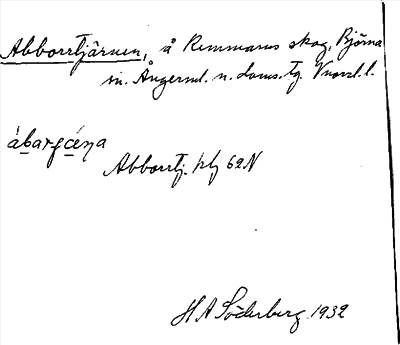 Abborrtjärnen, å Remmarns skog, Björna
sn. Ångerml. n. doms. tg. Vnorrl. l.
ábarçę́ṇa
Abborrtj. ktj 62N
H A Söderberg 1932